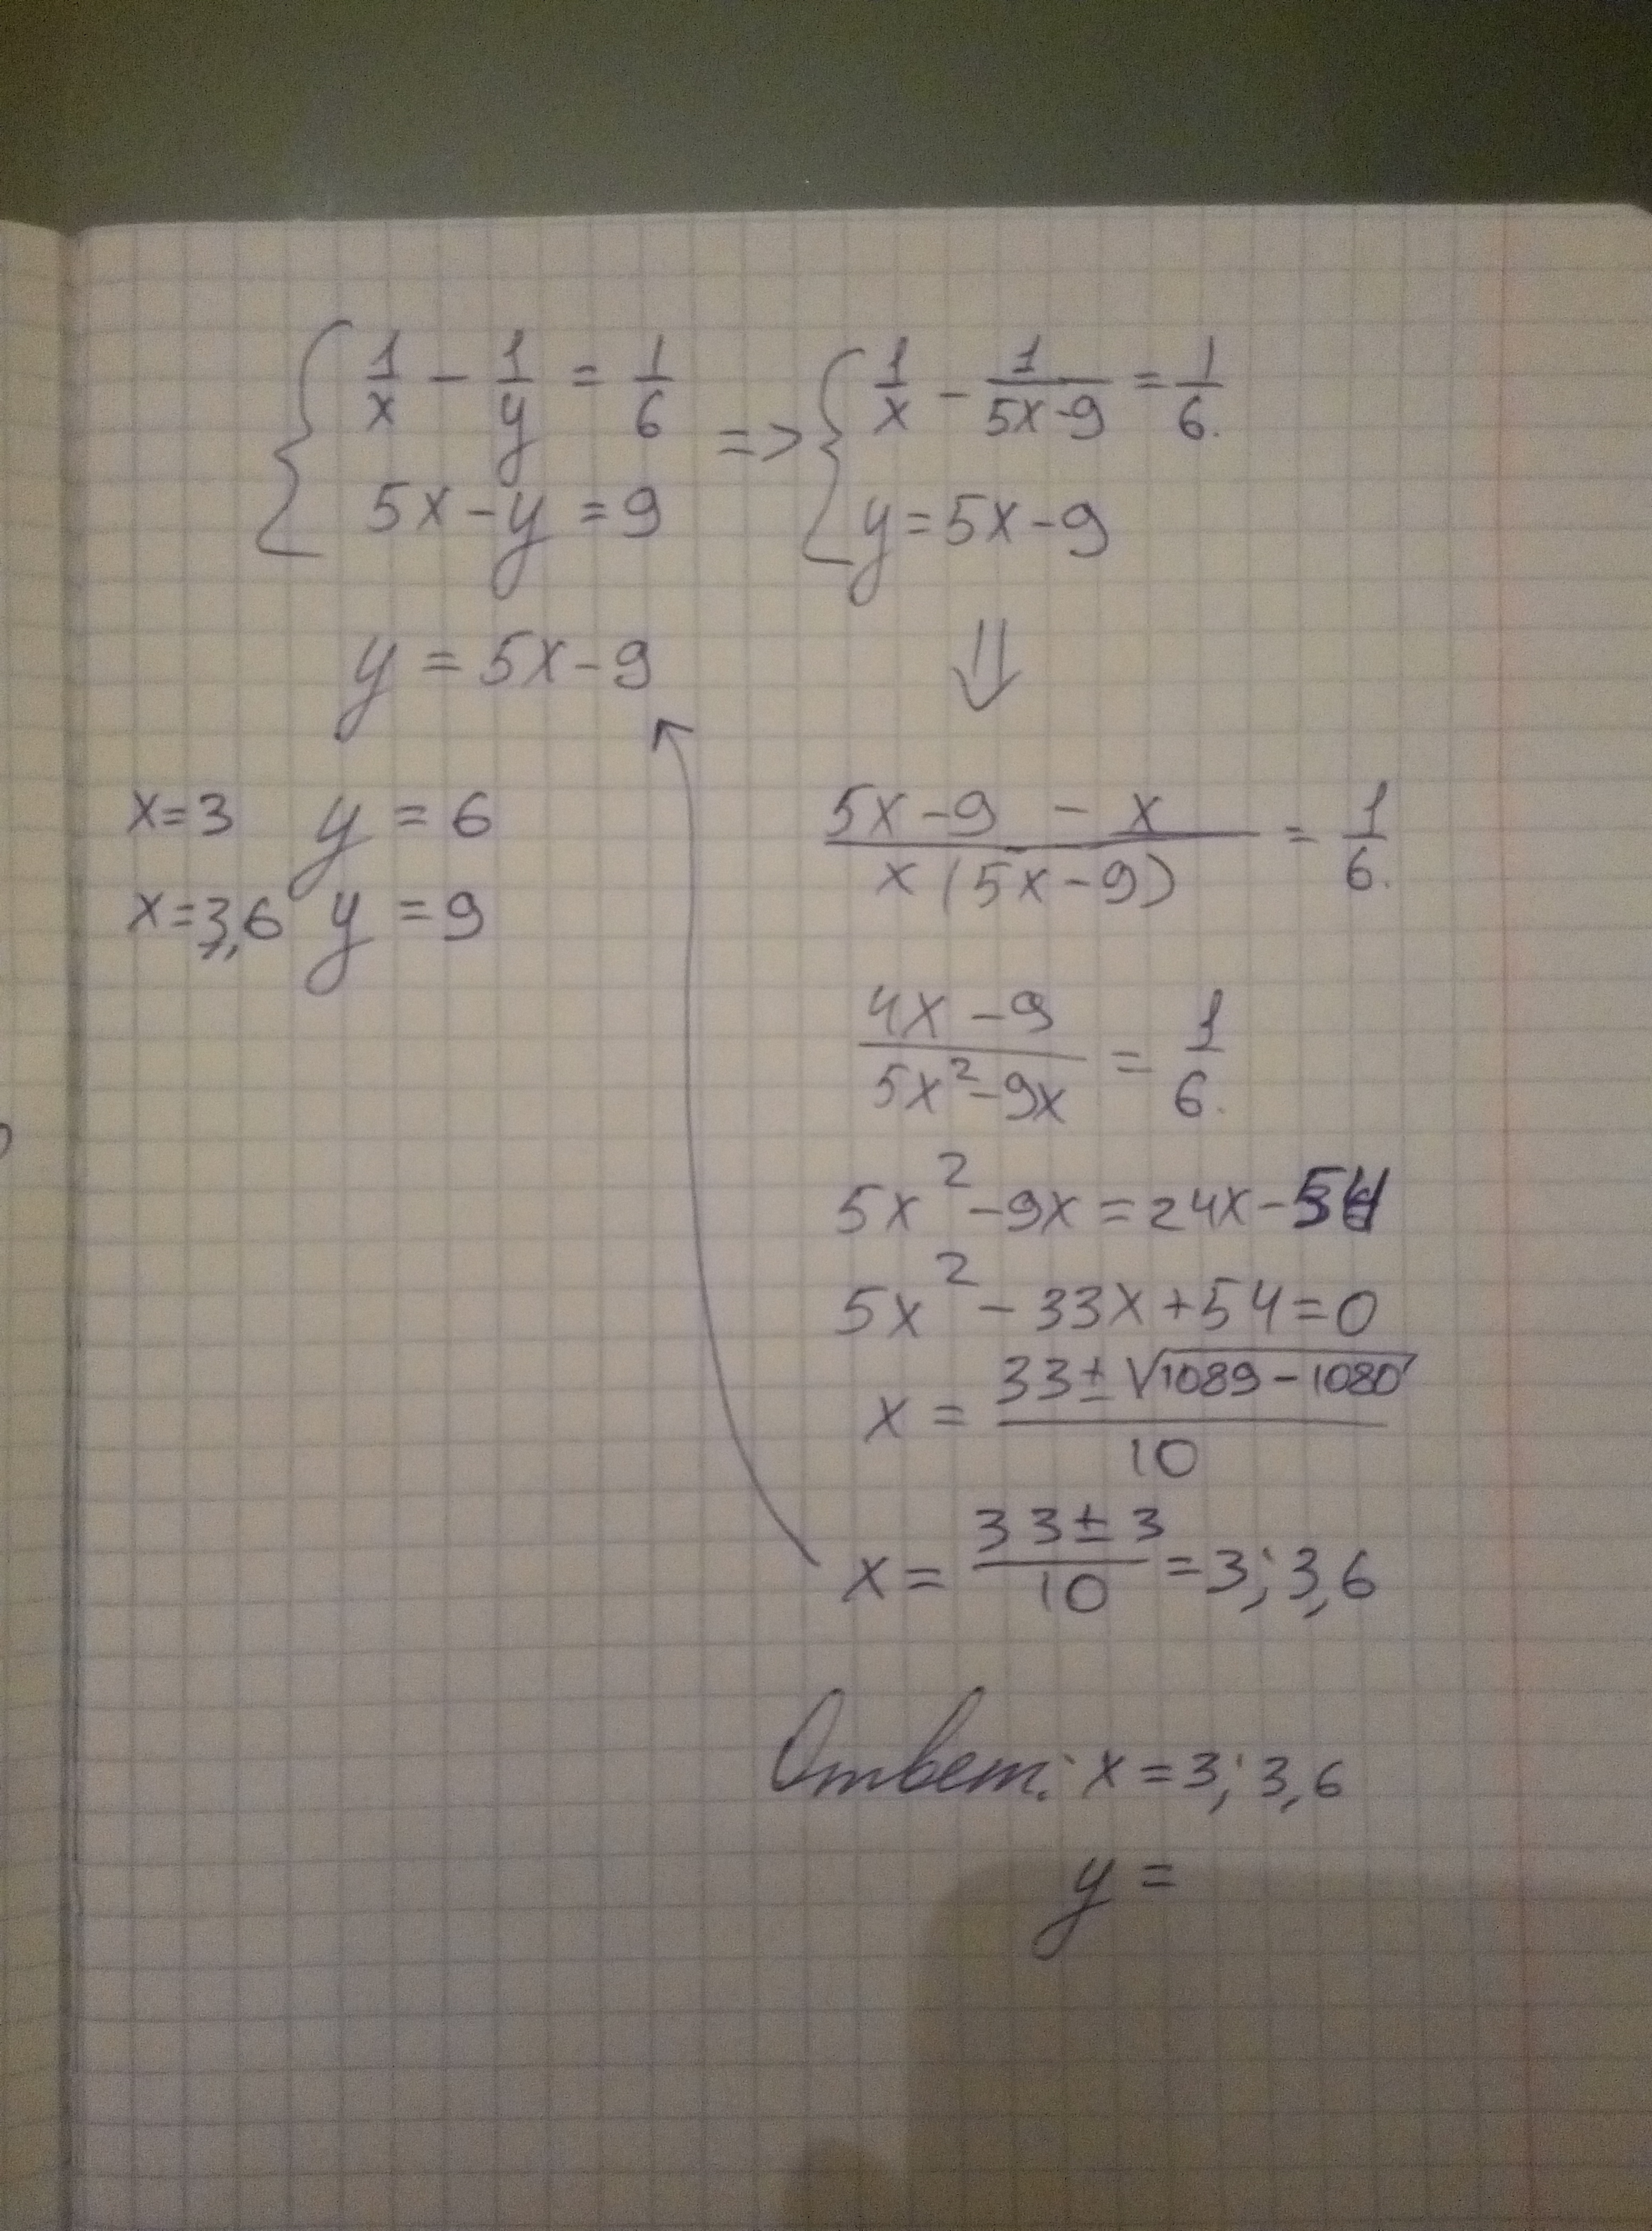 1/x - 1/y = 1/6 => 1/x - 1/(5x-9) = 1/6.
5x-y=9
y=5x-9
y=5x-9
⇓
x=3 y=6
x=3,6 y=9
(5x-9 - x)/(x(5x-9)) = 1/6.
(4x-9)/(5x²-9x) = 1/6.
5x²-9x=24x-54
5x²-33x+54=0
x = (33±√(1089-1080))/10
x = (33±3)/10 = 3; 3,6
Ответ: x=3; 3,6
y=